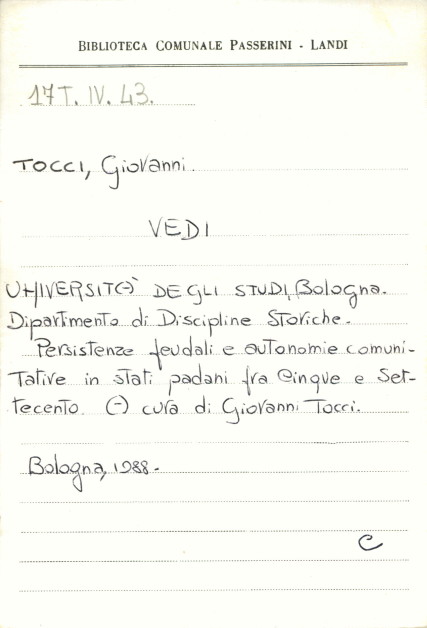 BIBLIOTECA COMUNALE PASSERINI - LANDI
17 T. IV. 43.
TOCCI, Giovanni.
VEDI
UNIVERSITÀ DEGLI STUDI, Bologna.
Dipartimento di Discipline Storiche.
Persistenze feudali e autonomie comuni-
tative in stati padani fra Cinque e Set-
tecento. A cura di Giovanni Tocci.
Bologna, 1988.
C